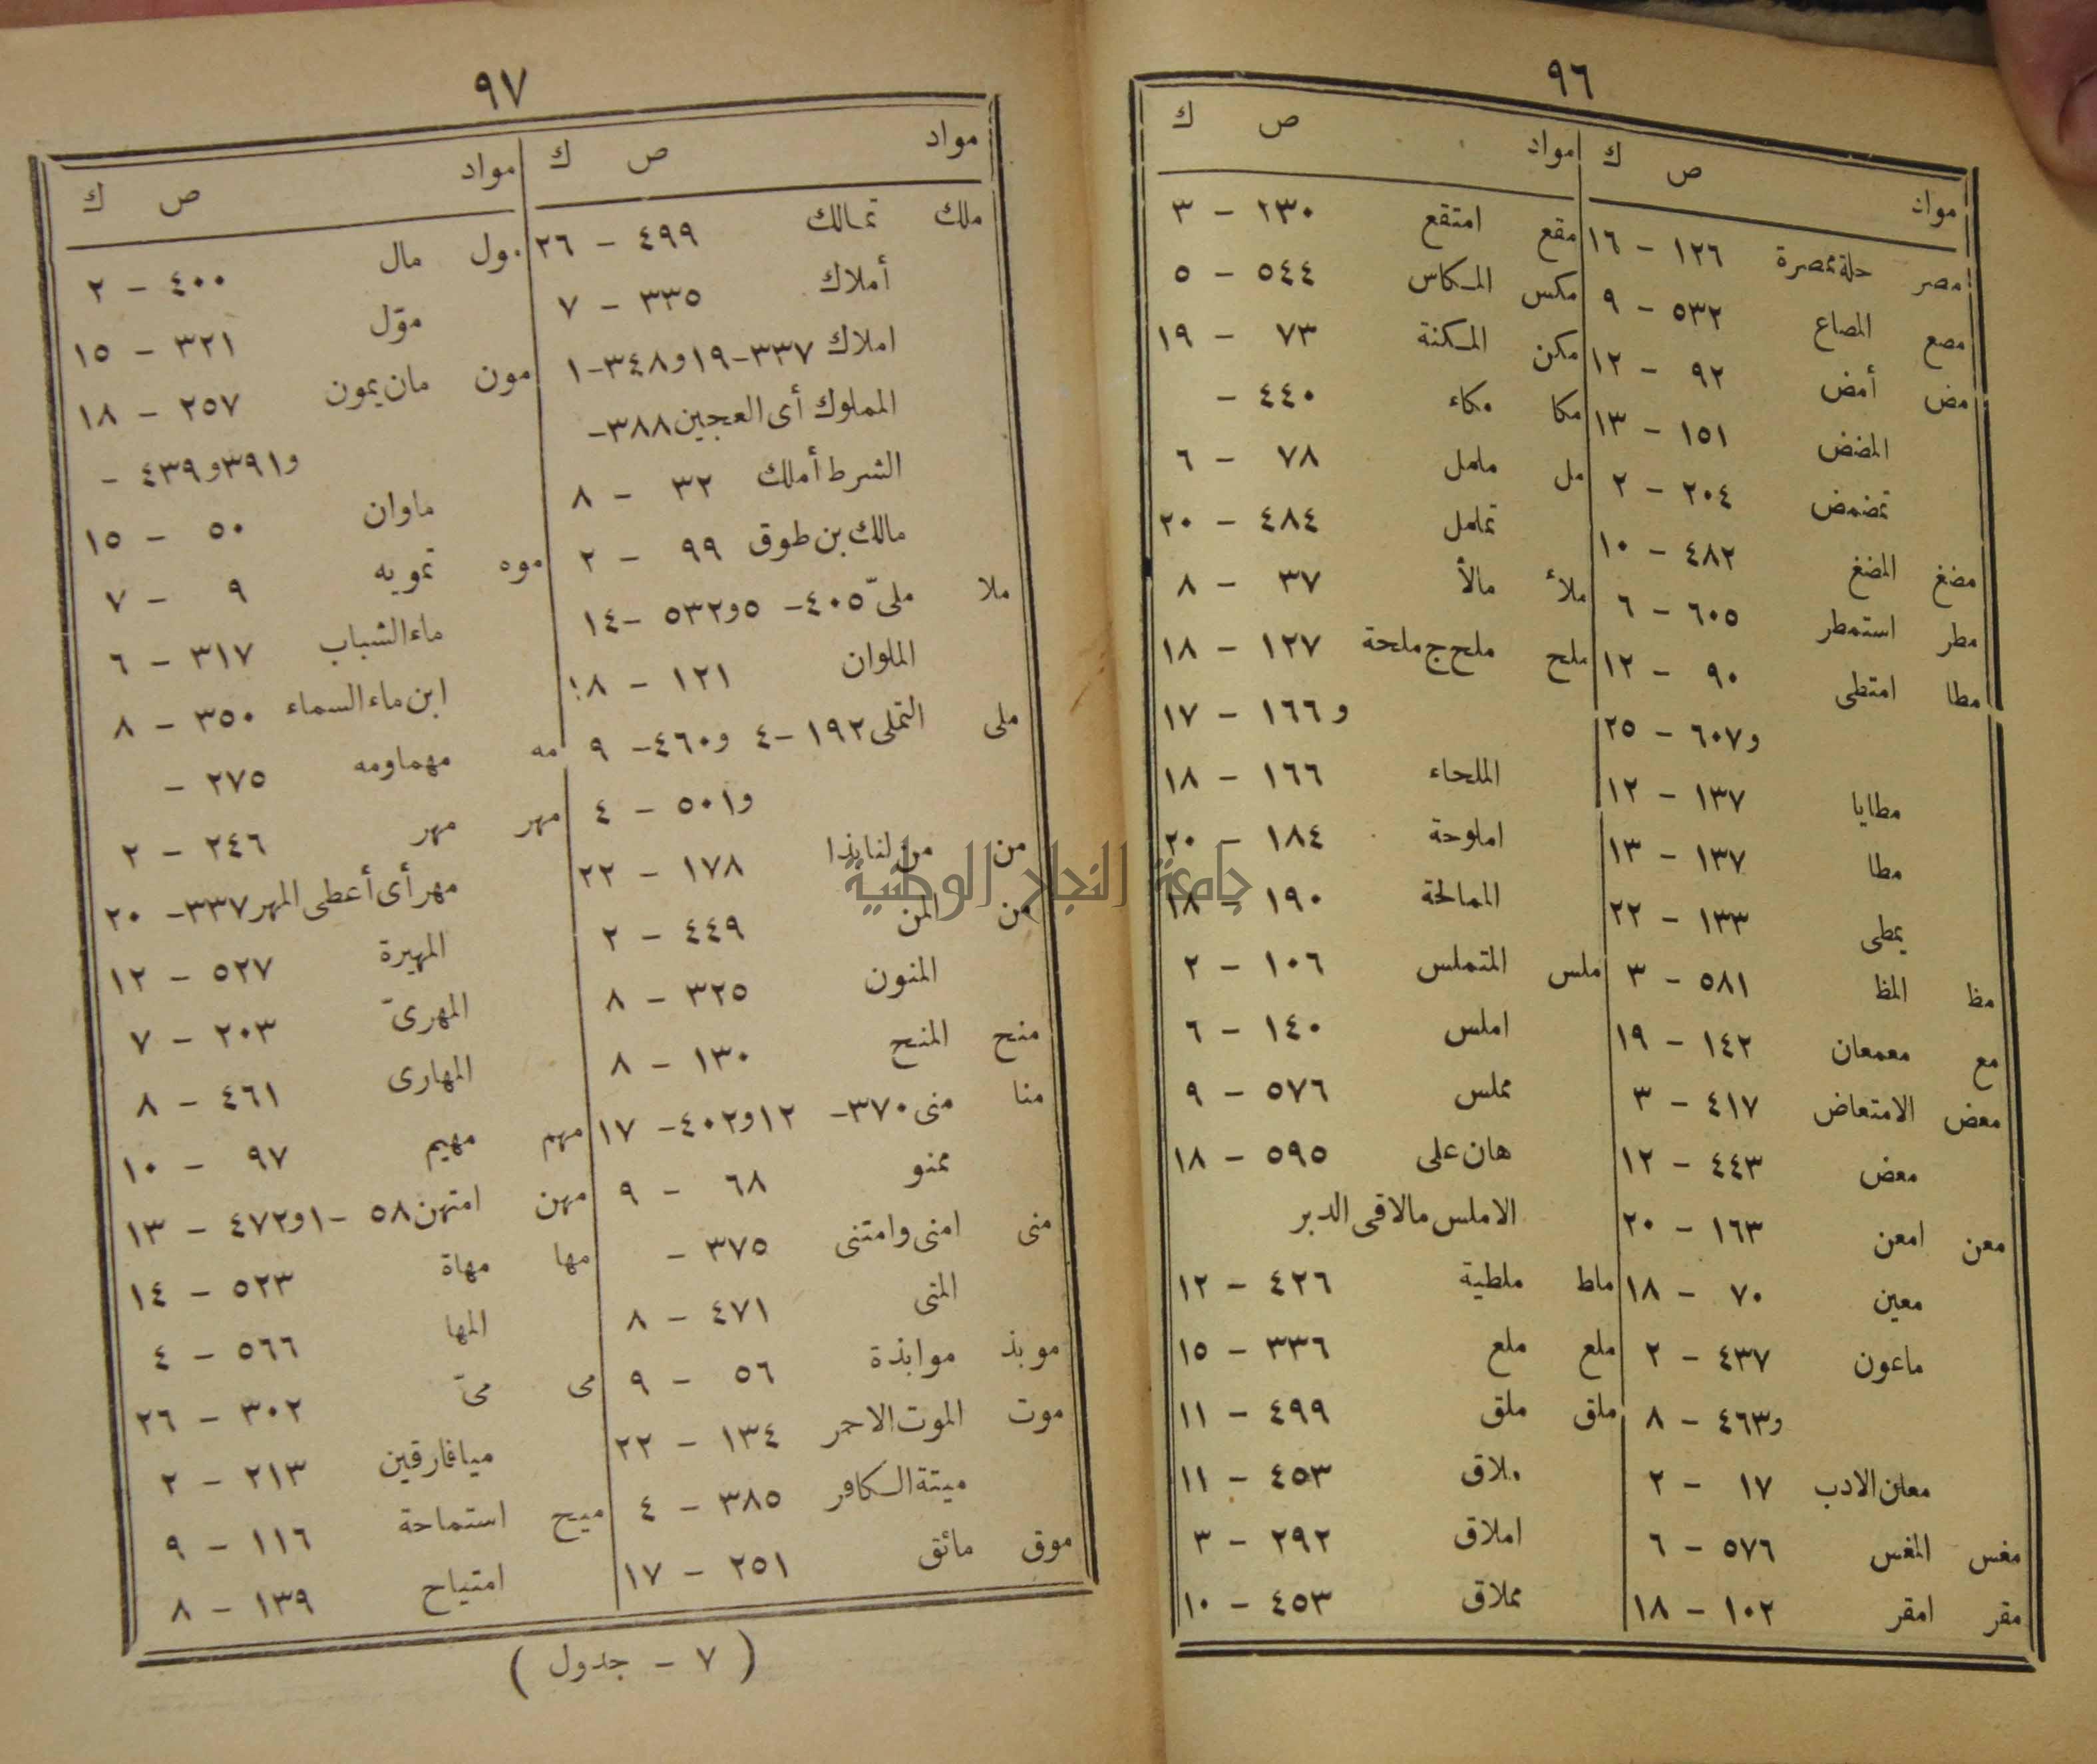 ٩٦
مواد ص ك
مصر حلة ممصرة ١٢٦ - ١٦
مصع المصاع ٥٣٢ - ٩
مض أمض ٩٢ - ١٢
المضض ١٥١ - ١٣
تمضمض ٢٠٤ - ٢
مضغ المضغ ٤٨٢ - ١٠
مطر استمطر ٦٠٥ - ٦
مطا امتطى ٩٠ - ١٢
و٦٠٧ - ٢٥
مطايا ١٣٧ - ١٢
مطا ١٣٧ - ١٣
يمطى ١٣٣ - ٢٢
مظ المظ ٥٨١ - ٣
مع معمعان ١٤٢ - ١٩
معض الامتعاض ٤١٧ - ٣
معض ٤٤٣ - ١٢
معن امعن ١٦٣ - ٢٠
معين ٧٠ - ١٨
ماعون ٤٣٧ - ٢
و٤٦٣ - ٨
معان الادب ١٧ - ٢
مغس المغس ٥٧٦ - ٦
مقر امقر ١٠٢ - ١٨
مواد ص ك
مقع امتقع ٢٣٠ - ٣
مكس المكاس ٥٤٤ - ٥
مكن المكنة ٧٣ - ١٩
مكا مكاء ٤٤٠ -
مل مامل ٧٨ - ٦
تمامل ٤٨٤ - ٢٠
ملأ مالأ ٣٧ - ٨
ملح ملح ج ملحة ١٢٧ - ١٨
و ١٦٦ - ١٧
الملحاء ١٦٦ - ١٨
املوحة ١٨٤ - ٢٠
الممالحة ١٩٠ - ١٨
ملس المتملس ١٠٦ - ٢
املس ١٤٠ - ٦
مملس ٥٧٦ - ٩
هان على ٥٩٥ - ١٨
الاملس مالاقى الدبر
ملط ملطية ٤٢٦ - ١٢
ملع ملع ٣٣٦ - ١٥
ملق ملق ٤٩٩ - ١١
ملاق ٤٥٣ - ١١
املاق ٢٩٢ - ٣
مملاق ٤٥٣ - ١٠
٩٧
مواد ص ك
ملك تمالك ٤٩٩ - ٢٦
أملاك ٣٣٥ - ٧
املاك ٣٣٧-١٩و٣٤٨-١
المملوك أى العجين ٣٨٨-
الشرط أملك ٣٢ - ٨
مالك بن طوق ٩٩ - ٢
ملا ملىّ ٤٠٥- ٥و٥٣٢ -١٤
الملوان ١٢١ - ١٨
ملى التملى ١٩٢ -٤ و٤٦٠- ٩
و٥٠١ - ٤
من من لنا بذا ١٧٨ - ٢٢
من المن ٤٤٩ - ٢
المنون ٣٢٥ - ٨
منح المنح ١٣٠ - ٨
منا منى ٣٧٠- ١٢و٤٠٢- ١٧
ممنو ٦٨ - ٩
منى امنى وامتنى ٣٧٥ -
المنى ٤٧١ - ٨
موبذ موابذة ٥٦ - ٩
موت الموت الاحمر ١٣٤ - ٢٢
ميتة الكافر ٣٨٥ - ٤
موق مائق ٢٥١ - ١٧
مواد ص ك
مول مال ٤٠٠ - ٢
موّل ٣٢١ - ١٥
مون مان يمون ٢٥٧ - ١٨
و٣٩١و٤٣٩ -
ماوان ٥٠ - ١٥
موه تمويه ٩ - ٧
ماء الشباب ٣١٧ - ٦
ابن ماء السماء ٣٥٠ - ٨
مه مهما ومه ٢٧٥ -
مهر مهر ٢٤٦ - ٢
مهر أى أعطى المهر ٣٣٧- ٢٠
المهيرة ٥٢٧ - ١٢
المهرىّ ٢٠٣ - ٧
المهارى ٤٦١ - ٨
مهم مهيم ٩٧ - ١٠
مهن امتهن ٥٨ -١و٤٧٢ - ١٣
مها مهاة ٥٢٣ - ١٤
المها ٥٦٦ - ٤
مى مىّ ٣٠٢ - ٢٦
ميافارقين ٢١٣ - ٢
ميح استماحة ١١٦ - ٩
امتياح ١٣٩ - ٨
( ٧ - جدول )
جامعة النجاح الوطنية